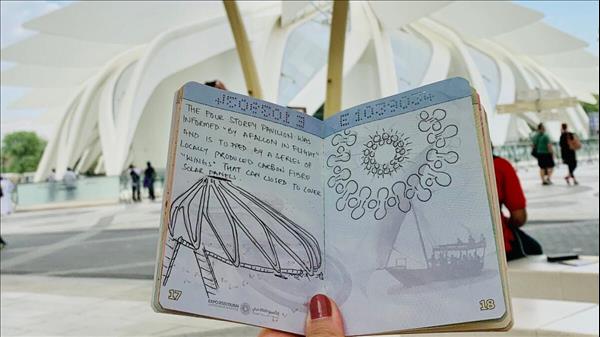 THE FOUR STOREY PAVILION WAS
INFORMED "BY A FALCON IN FLIGHT"
AND IS TOPPED BY A SERIES OF
LOCALLY PRODUCED CARBON FIBRE
"WINGS" THAT CAN CLOSED TO COVER
SOLAR PANELS.
EXPO 2020 DUBAI
17
18